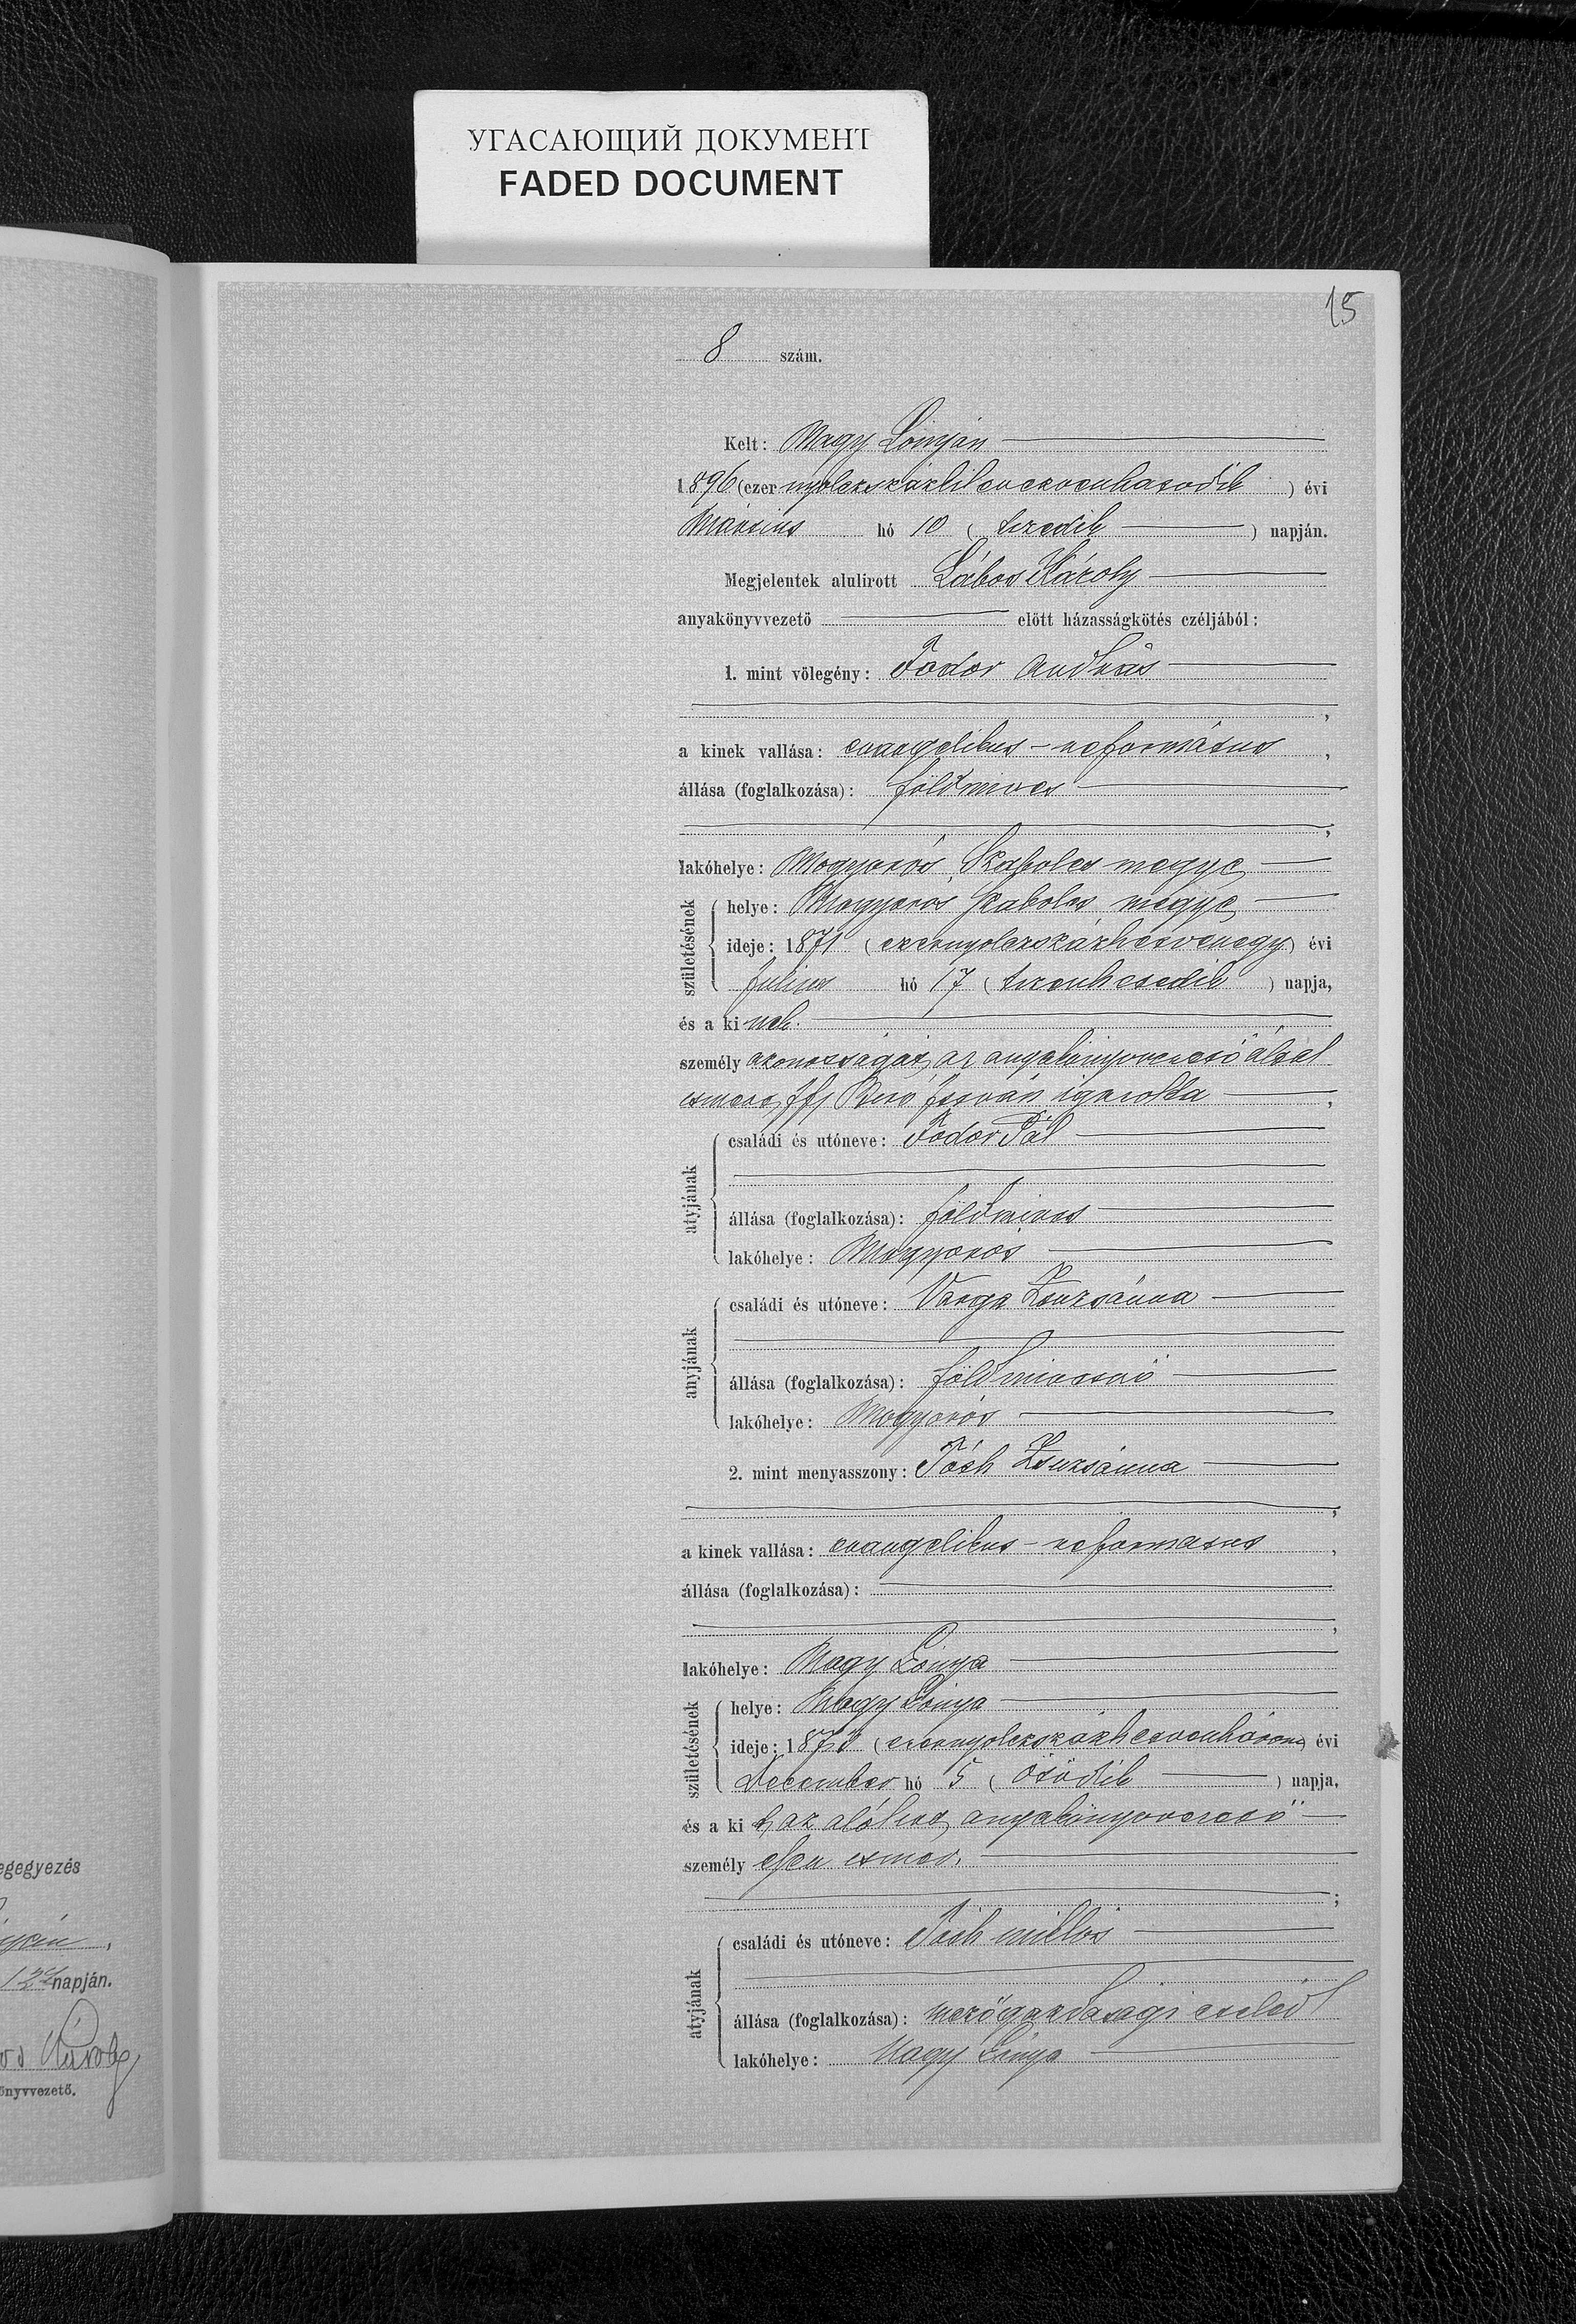 УГАСАЮЩИЙ ДОКУМЕНТ
FADED DOCUMENT
15
8 szám.
Kelt: Nagy Lónyán
1896 (ezer nyolczszázkilenczvenhatodik) évi
Márczius hó 10 (tizedik) napján.
Megjelentek alulírott Lábos Károly
anyakönyvvezető előtt házasságkötés czéljából:
1. mint vőlegény: Fodor András
,
a kinek vallása: evangelikus-református,
állása (foglalkozása): földmives
;
lakóhelye: Mogyorós, Szabolcs megye
születésének
helye: Mogyoros Szabolcs megye
ideje: 1871 (ezernyolczszázhetvenegy) évi
Julius hó 17 (tizenhetedik) napja,
és a ki nek
személy azonosságát, az anyakönyvvezető által
ismert, Ifj Biró István igazolta,
atyjának
családi és utóneve: Fodor Pál
állása (foglalkozása): földmives
lakóhelye: Mogyorós
anyjának
családi és utóneve: Varga Zsuzsánna
állása (foglalkozása): földmivesnő
lakóhelye: Mogyorós
2. mint menyasszony: Tóth Zsuzsánna
,
a kinek vallása: evangelikus-reformatus,
állása (foglalkozása):
,
lakóhelye: Nagy Lónya
születésének
helye: Nagy Lónya
ideje: 1873 (ezernyolczszázhetvenhárom) évi
December hó 5 (ötödik) napja,
és a ki t, az alólirt, anyakönyvvezető
személy esen ismer,
;
atyjának
családi és utóneve: Tóth miklós
állása (foglalkozása): mezőgazdasagi cseléd
lakóhelye: Nagy Lónya
egegyezés
napján.
Károly
önyvvezető.